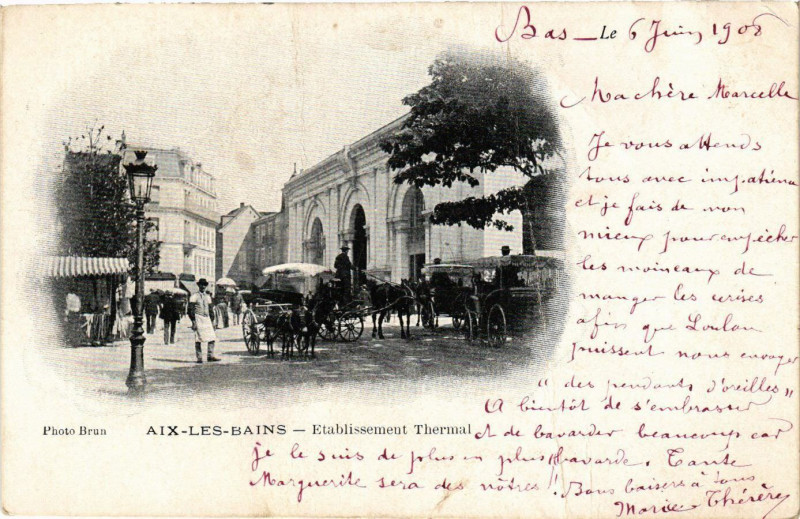 Bas — Le 6 Juin 1906
Ma chère Marcelle
Je vous attends
tous avec impatience
et je fais de mon
mieux pour empêcher
les moineaux de
manger les cerises
afin que Loulou
puissent nous envoyer
"des pendants d'oreilles"
A bientôt de s'embrasser
et de bavarder beaucoup car
je le suis de plus en plus bavarde. Tante
Marguerite sera des nôtres! Bons baisers à tous
Marie Thérèse
Photo Brun
AIX-LES-BAINS — Etablissement Thermal